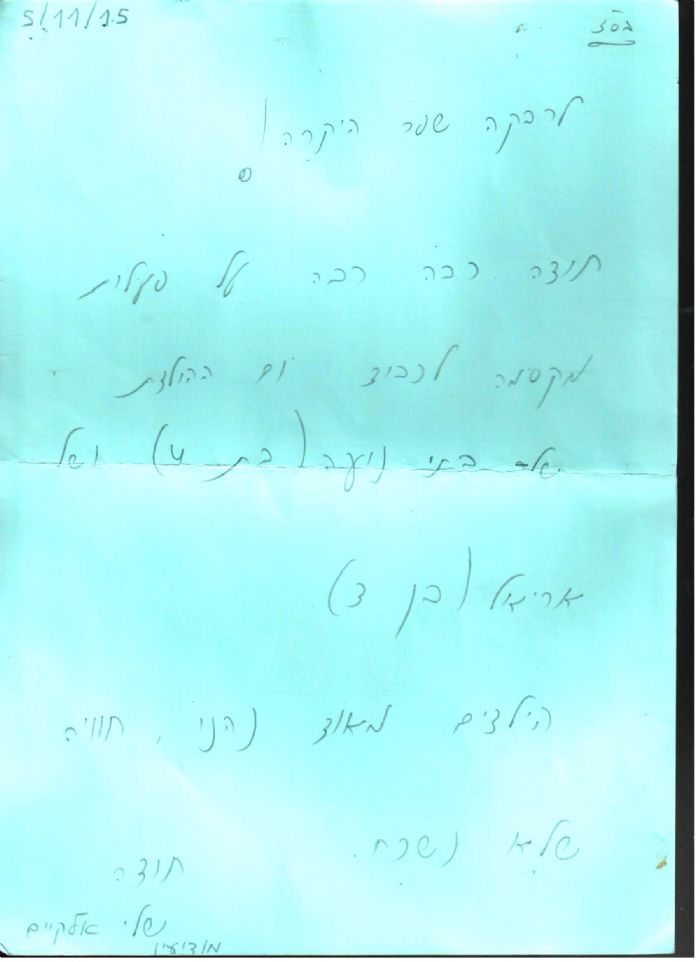 5/11/15
בס"ד
לרבקה שפר היקרה!
תודה רבה רבה על פעילות
מקסימה לכבוד יום ההולדת
של בתי נועה (בת 4) ושל
אריאל (בן 3)
הילדים מאוד נהנו, חוויה
שלא נשכח.
תודה
אלקיים
מודיעין